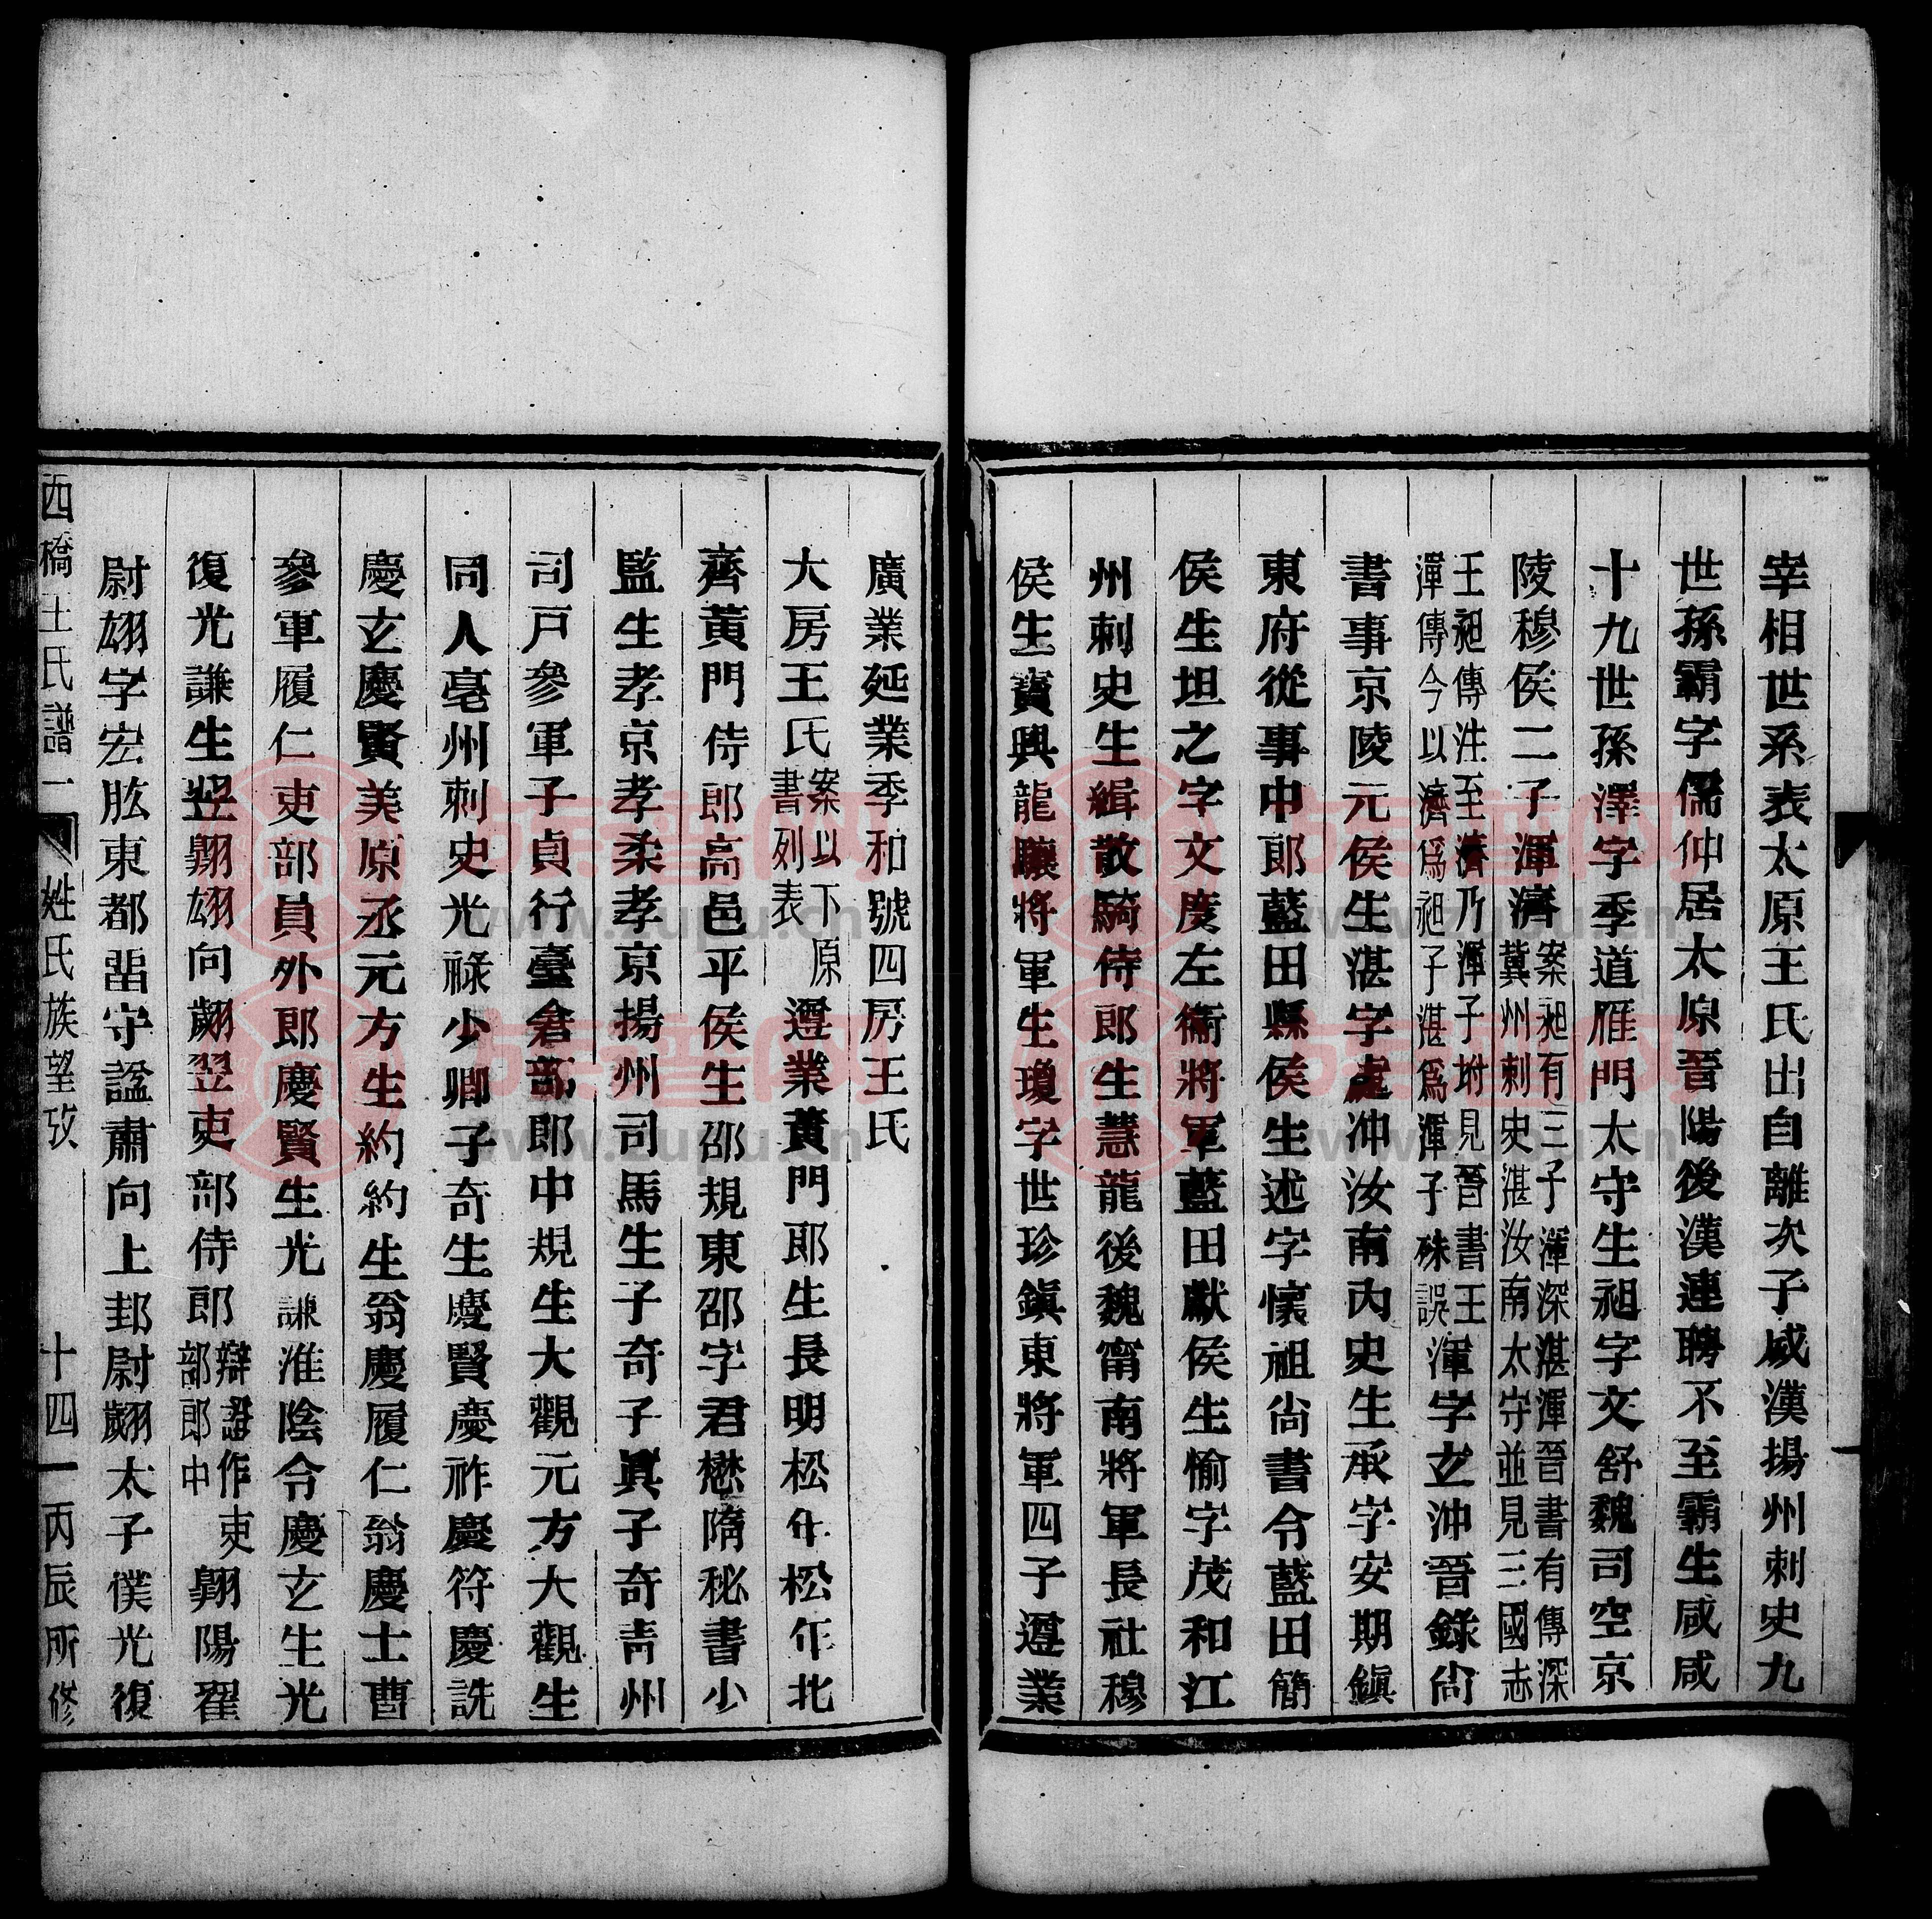 宰相世系表太原王氏出自離次子威漢揚州刺史九
世孫霸字儒仲居太原晉陽後漢連聘不至霸生咸咸
十九世孫澤字季道雁門太守生昶字文舒魏司空京
陵穆侯二子渾濟案昶有三子渾深湛渾晉書有傳深
冀州刺史湛汝南太守並見三國志
王昶傳注至濟乃渾子坿見晉書王
渾傳今以濟爲昶子湛爲渾子殊誤渾字玄沖晉錄尙
書事京陵元侯生湛字處沖汝南內史生承字安期鎭
東府從事中郎藍田縣侯生述字懷祖尙書令藍田簡
侯生坦之字文度左衞將軍藍田獻侯生愉字茂和江
州刺史生緝散騎侍郎生慧龍後魏甯南將軍長社穆
侯生寶興龍驤將軍生瓊字世珍鎭東將軍四子遵業
廣業延業季和號四房王氏
大房王氏案以下原
書列表遵業黃門郎生長明松年松年北
齊黃門侍郎高邑平侯生邵規東邵字君懋隋秘書少
監生孝京孝柔孝京揚州司馬生子奇子眞子奇靑州
司戸參軍子貞行臺倉部郎中規生大觀元方大觀生
同人亳州刺史光祿少卿子奇生慶賢慶祚慶符慶詵
慶玄慶賢美原丞元方生約約生翁慶履仁翁慶士曹
參軍履仁吏部員外郎慶賢生光謙淮陰令慶玄生光
復光謙生翌翱翃向翽翌吏部侍郎辯證作吏
部郎中翱陽翟
尉翃字宏肱東都畱守諡肅向上邽尉翽太子僕光復
西橋王氏譜一 姓氏族望攷 十四 丙辰所修
族譜网
www.zupu.cn
族譜网
www.zupu.cn
族譜网
www.zupu.cn
族譜网
www.zupu.cn